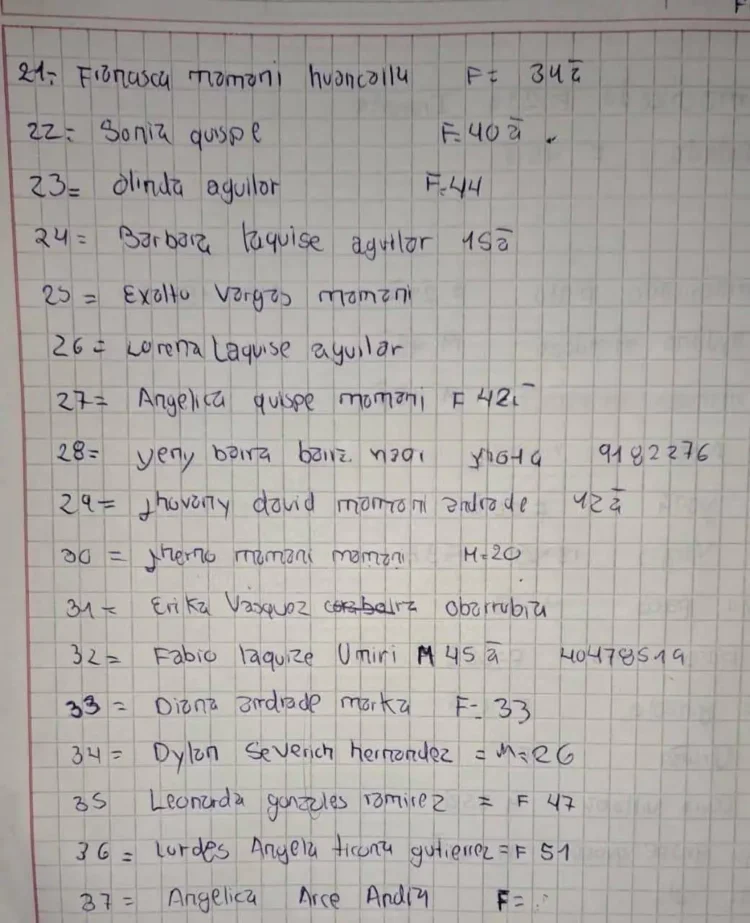 21= Fianasca mamani huancollu F= 34 ā
22= Sonia quispe F=40 ā .
23= Olinda aguilar F=44
24= Barbara laquise aguilar 15ā
25 = Exalto vargas mamani
26 = Lorena Laquise aguilar
27= Angelica quispe mamani F 42
28= yeny baira 9182276
29= Jhovany david mamani andrade 12 ā
30 = Jherno mamani mamani M=20
31= Erika Vasquez Obarrubia
32= Fabio laquize Umiri M 45 ā 40478519
33 = Diana andrade marka F= 33
34= Dylan Severich hernandez = M=26
35 Leonarda gonzales ramirez = F 47
36= Lurdes Angela ticona gutierrez = F 51
37= Angelica Arce Andia F=